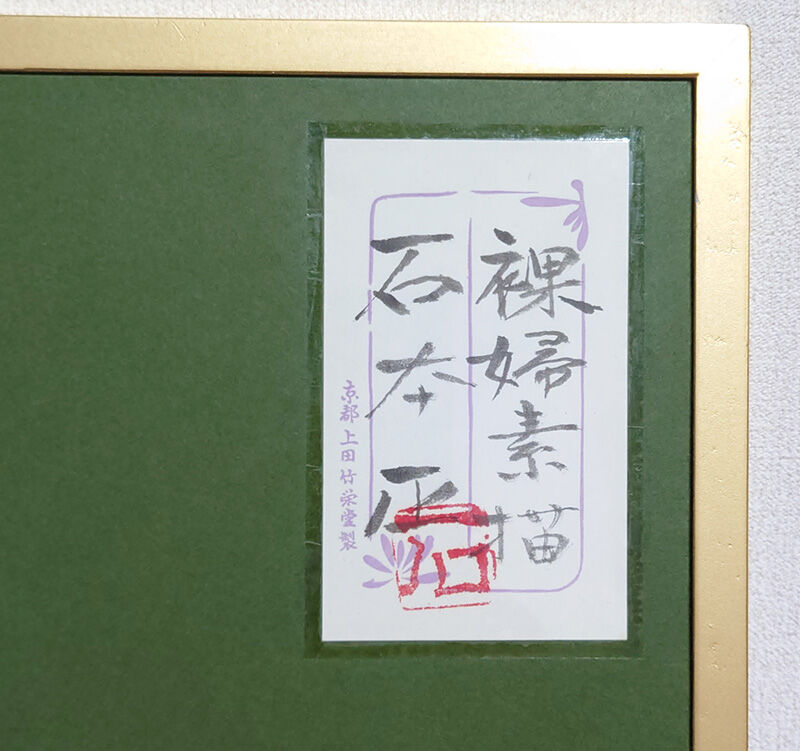 裸婦素描
石本正
石
京都 上田竹栄堂製